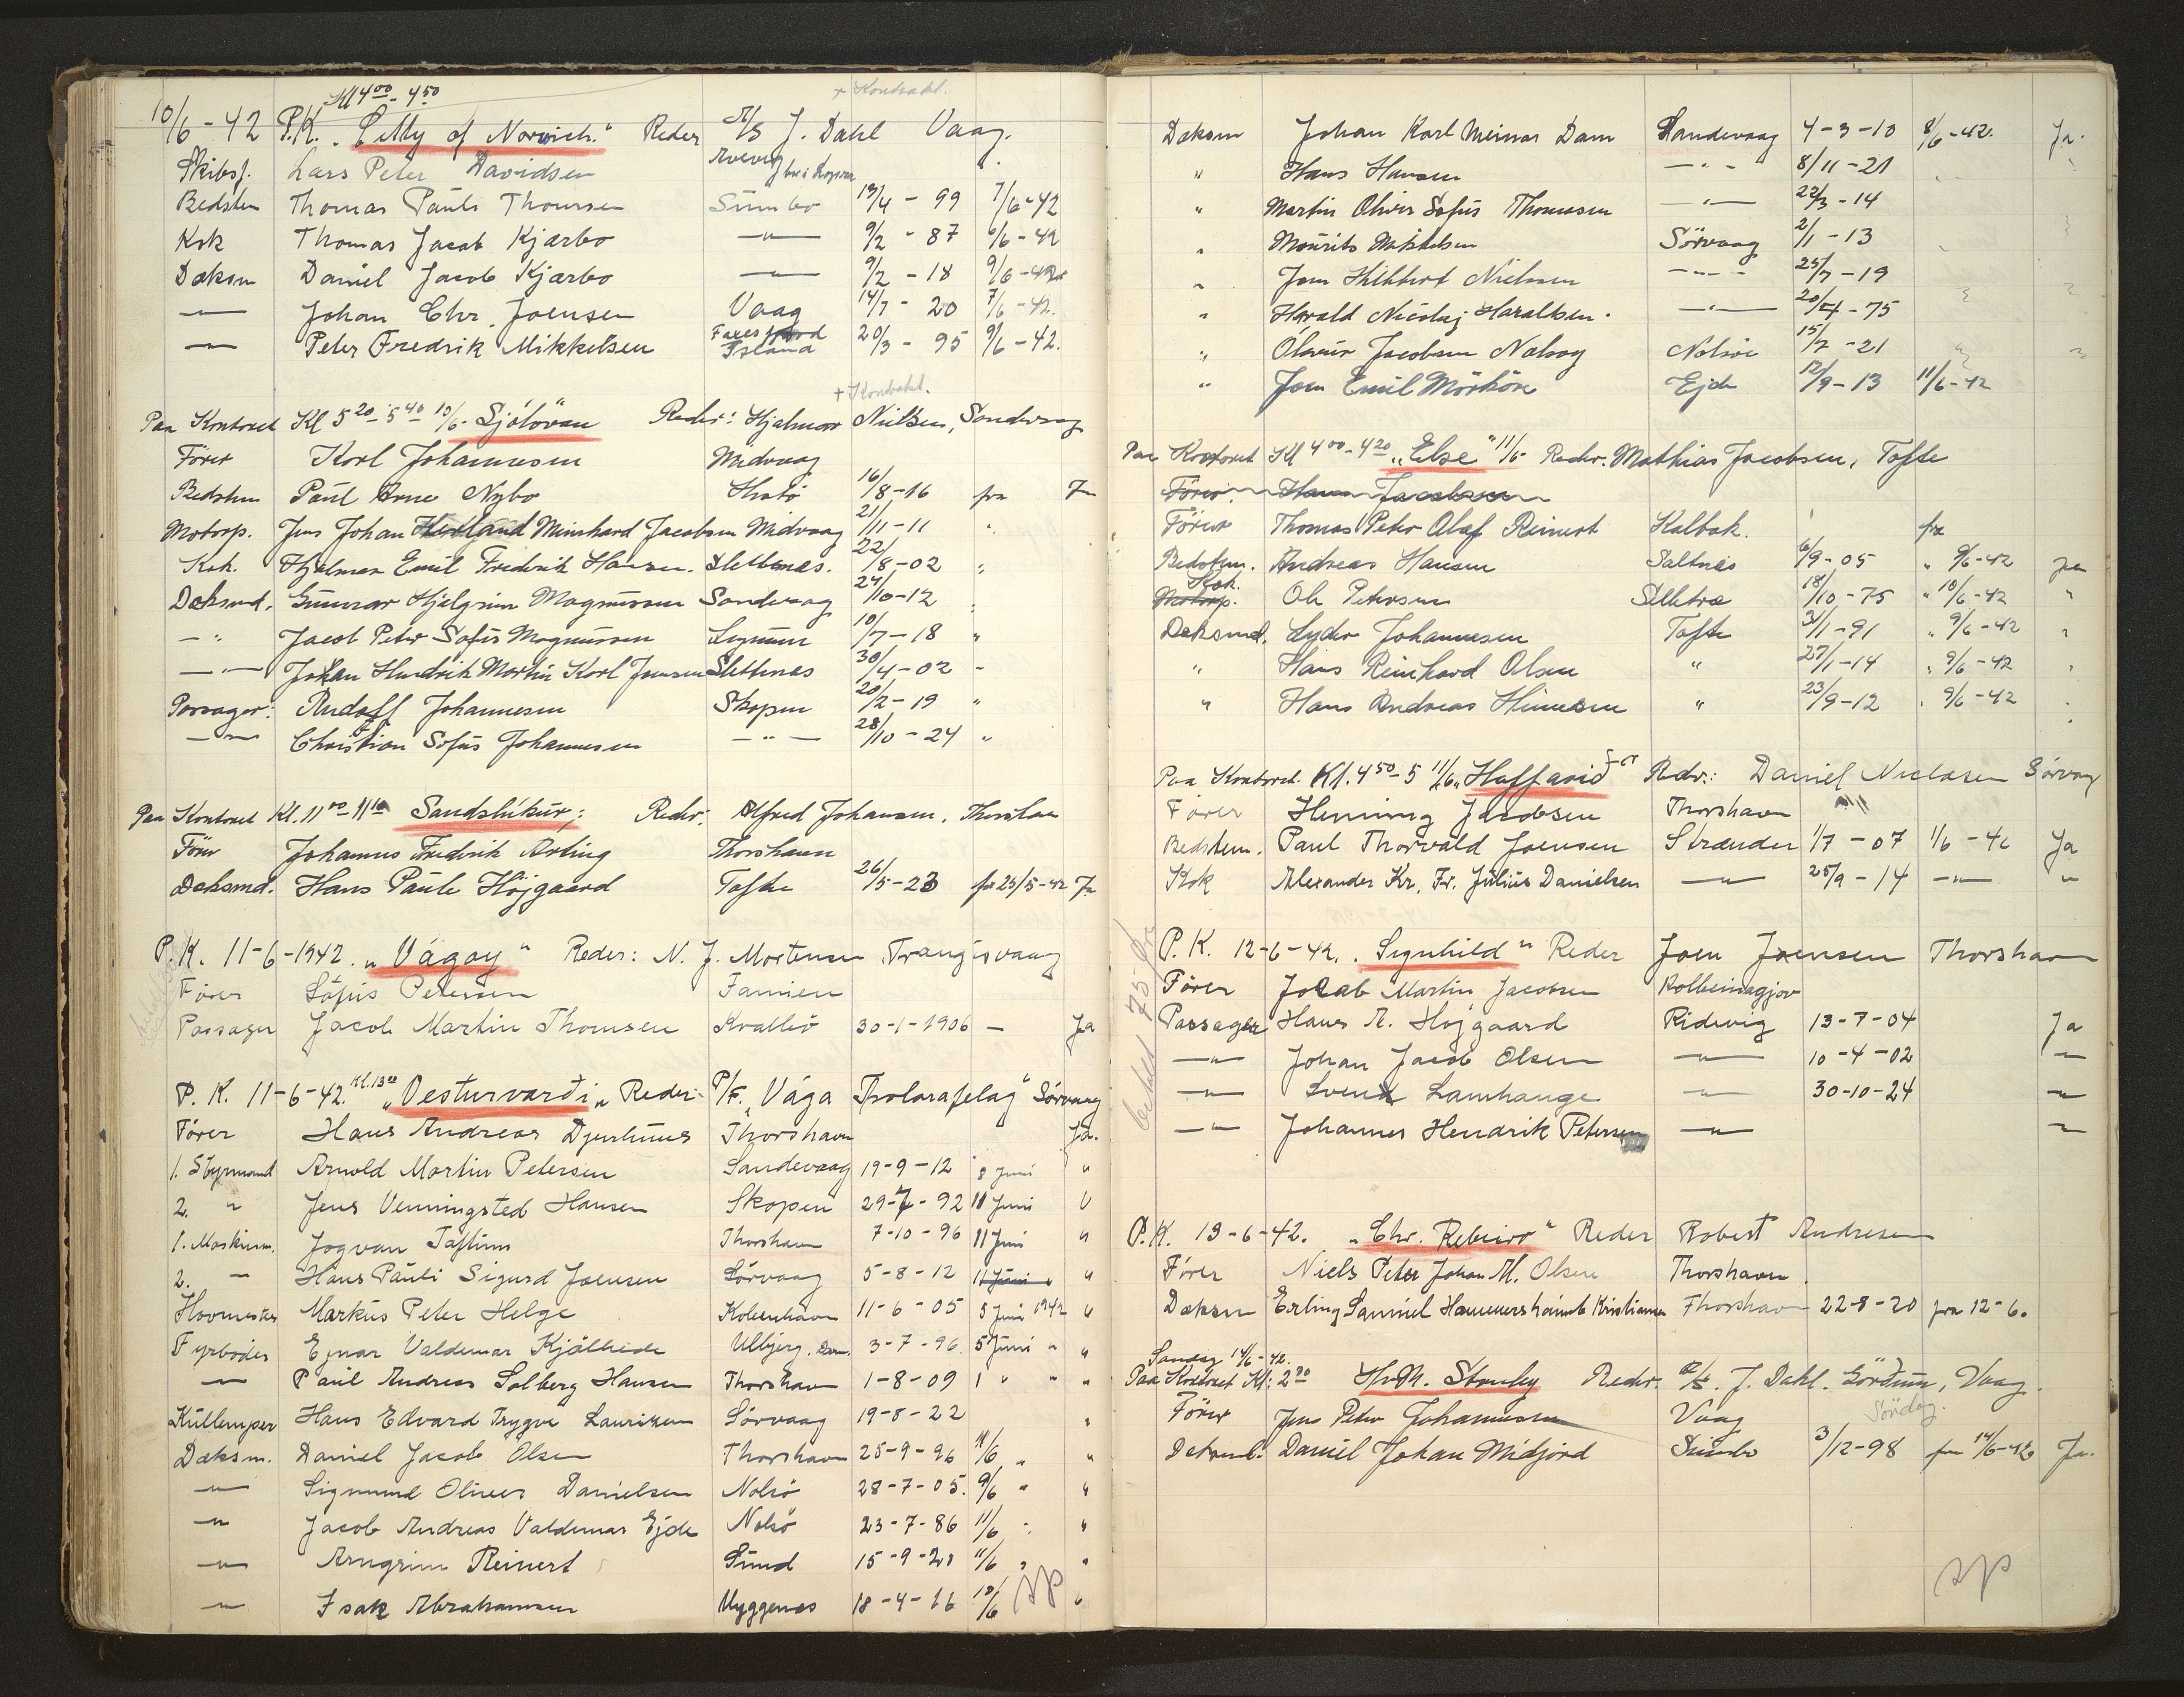 + Kontrakt.
Kl 4 00 - 4 50
10/6 - 42 P.K. „Citty of Norwich." Reder A/S J. Dahl Vaag.
Skibsf. Lars Peter Davidsen
Bedstm Thomas Pauli Thomsen Sumbo 19/4 - 99 7/6-42
Kok Thomas Jacob Kjærbo —"— 9/2 - 87 6/6-42
Dæksm Daniel Jacob Kjærbo —"— 9/2 - 18 9/6-42
—"— Johan Chr. Joensen Vaag 14/7 - 20 7/6-42.
—"— Peter Fredrik Mikkelsen Island 20/3 - 95 9/6-42.
+ Kontrakt.
Paa Kontoret Kl 5 20 - 5 40 10/6 - Sjólövan Reder: Hjalmar Nielsen, Sandevaag
Förer Karl Johannesen Midvaag
Bedstm Paul Arne Nybo 16/8-16 fra Ja
Motorp. Jens Johan Meinhard Jacobsen Midvaag 21/11-11 "
Kok. Hjalmar Emil Fredrik Hansen. Slettenæs. 22/8-02 "
Dæksmd. Gunnar Hjalgrim Magnussen Sandevaag 24/10-12 "
—"— Jacob Peter Sofus Magnussen 10/7-18 "
—"— Johan Hendrik Martin Karl Joensen Slettenæs 30/4-02 "
Passager: Rudolf Johannesen Skopun 20/2-19 "
—"— Christian Sofus Johannesen —"— 28/10-24 "
Paa Kontoret Kl. 11 00 - 11 10 Sandshükur; Reder. Alfred Johansen, Thorshavn
Förer Johannes Fredrik Arting Thorshavn
Dæksmd. Hans Paule Höjgaard Tofte 26/5-23 fra 25/5-42 Ja
P.K. 11-6-1942. „Vágoy" Reder: N. J. Mortensen Trangisvaag
Fører Sófus Petersen Famien
Passager Jacob Martin Thomsen Kvalbö 30-1-1906 — Ja
P.K. 11-6-42. Kl. 13 00 „Vesturvardi" Reder: P/F. „Vága Trolarafelag" Sörvaag
Förer Hans Andreas Djurhuus Thorshavn Ja.
1. Styrmand Arnold Martin Petersen Sandevaag 19-9-12 8 Juni "
2. " Jens Venningsted Hansen Skopun 29-7-92 11 Juni "
1. Maskinm. Jogvan Taftum Thorshavn 7-10-96 11 Juni "
2. —"— Hans Pauli Sigurd Joensen Sörvaag 5-8-12 11 Juni "
Hovmester Markus Peter Helge Kobenhavn 11-6-05 5 Juni 1942 "
Fyrböder Ejnar Valdemar Kjölhede Ulbjerg. Dan. 3-7-96 5 Juni " "
—"— Paul Andreas Solberg Hansen Thorshavn 1-8-09 1 " " "
Kullemper Hans Edvard Trygve Lauritzen Sörvaag 19-8-22 "
Dæksm. Daniel Jacob Olsen Thorshavn 25-9-96 11/6 " "
—"— Sigmund Oliver Danielsen Nolsö 28-7-05. 9/6 " "
—"— Jacob Andreas Valdemar Ejde Nolsö 23-7-86 11/6 " "
—"— Arngrim Reinert Sund 15-9-20 11/6 " "
—"— Isak Abrahamsen Myggenæs 18-4-16 10/6 "
Dæksm Johan Karl Meinar Dam Sandevaag 4-3-10 8/6-42. Ja.
" Hans Hansen —"— 8/11-21
" Martin Oliver Sofus Thomasen —"— 22/3-14
" Maurits Mikkelsen Sörvaag 2/1-13
" Jens Hilbert Nielsen —"— 25/7-19
" Harald Nicolaj Haraldsen —"— 20/4-75
" Olavur Jacobsen Nolsoy Nolsöe 15/7-21
" Joen Emil Mörköre Ejde 12/9-13 11/6-42
Paa Kontoret Kl 4 00 - 4 20 „Else" 11/6 - Reder. Mathias Jacobsen, Tofte
Förer. Hans Jacobsen
Förer Thomas Peter Olaf Reinert Kalbak. fra
Bedstem. Andreas Hansen Saltnes 6/9-05 " 9/6-42 Ja
Kok. Motorp. Ole Petersen Selletræ 18/10-75 " 10/6-42 "
Dæksmd. Lyder Johannesen Tofte 31/1-91 " 9/6-42 "
" Hans Reinhard Olsen " 27/1-14 " 9/6-42 "
" Hans Andreas Hinnesen " 23/9-12 " 9/6-42 "
Paa Kontoret. Kl. 4 50 - 5 11/6 „Haffarid" Reder.: Daniel Niclasen Sörvag
Förer Henning Jacobsen Thorshavn
Bedstem. Paul Thorvald Joensen Strænder 1/7 - 07 1/6 - 42 Ja
Kok Alexander Kr. Fr. Julius Danielsen —"— 25/9 - 14 —"— "
P.K. 12-6-42. „Signhild" Reder Joen Joensen Thorshavn
Förer Jacob Martin Jacobsen Kolbeinagjov
Passager Hans A. Hojgaard Ridevig 13-7-04 Ja
—"— Johan Jacob Olsen —"— 10-4-02 —"—
—"— Svend Lamhauge —"— 30-10-24 —"—
—"— Johannes Hendrik Petersen —"— —"—
P.K. 13-6-42. „Chr. Rebeiro" Reder Robert Andresen
Förer Niels Peter Johan M. Olsen Thorshavn
Dæksm Erling Samuel Hammershaimb Kristiansen Thorshavn 22-8-20 fra 12-6.
Søndag 14/6-42.
Paa Kontoret Kl: 2 30 H.M. Stanley Reder. A/S. J. Dahl. Vaag.
Förer Jens Peter Johannesen Vaag Söndag.
Dæksmd. Daniel Johan Midjord Sumbo 3/12-98 fra 14/6-42 Ja.